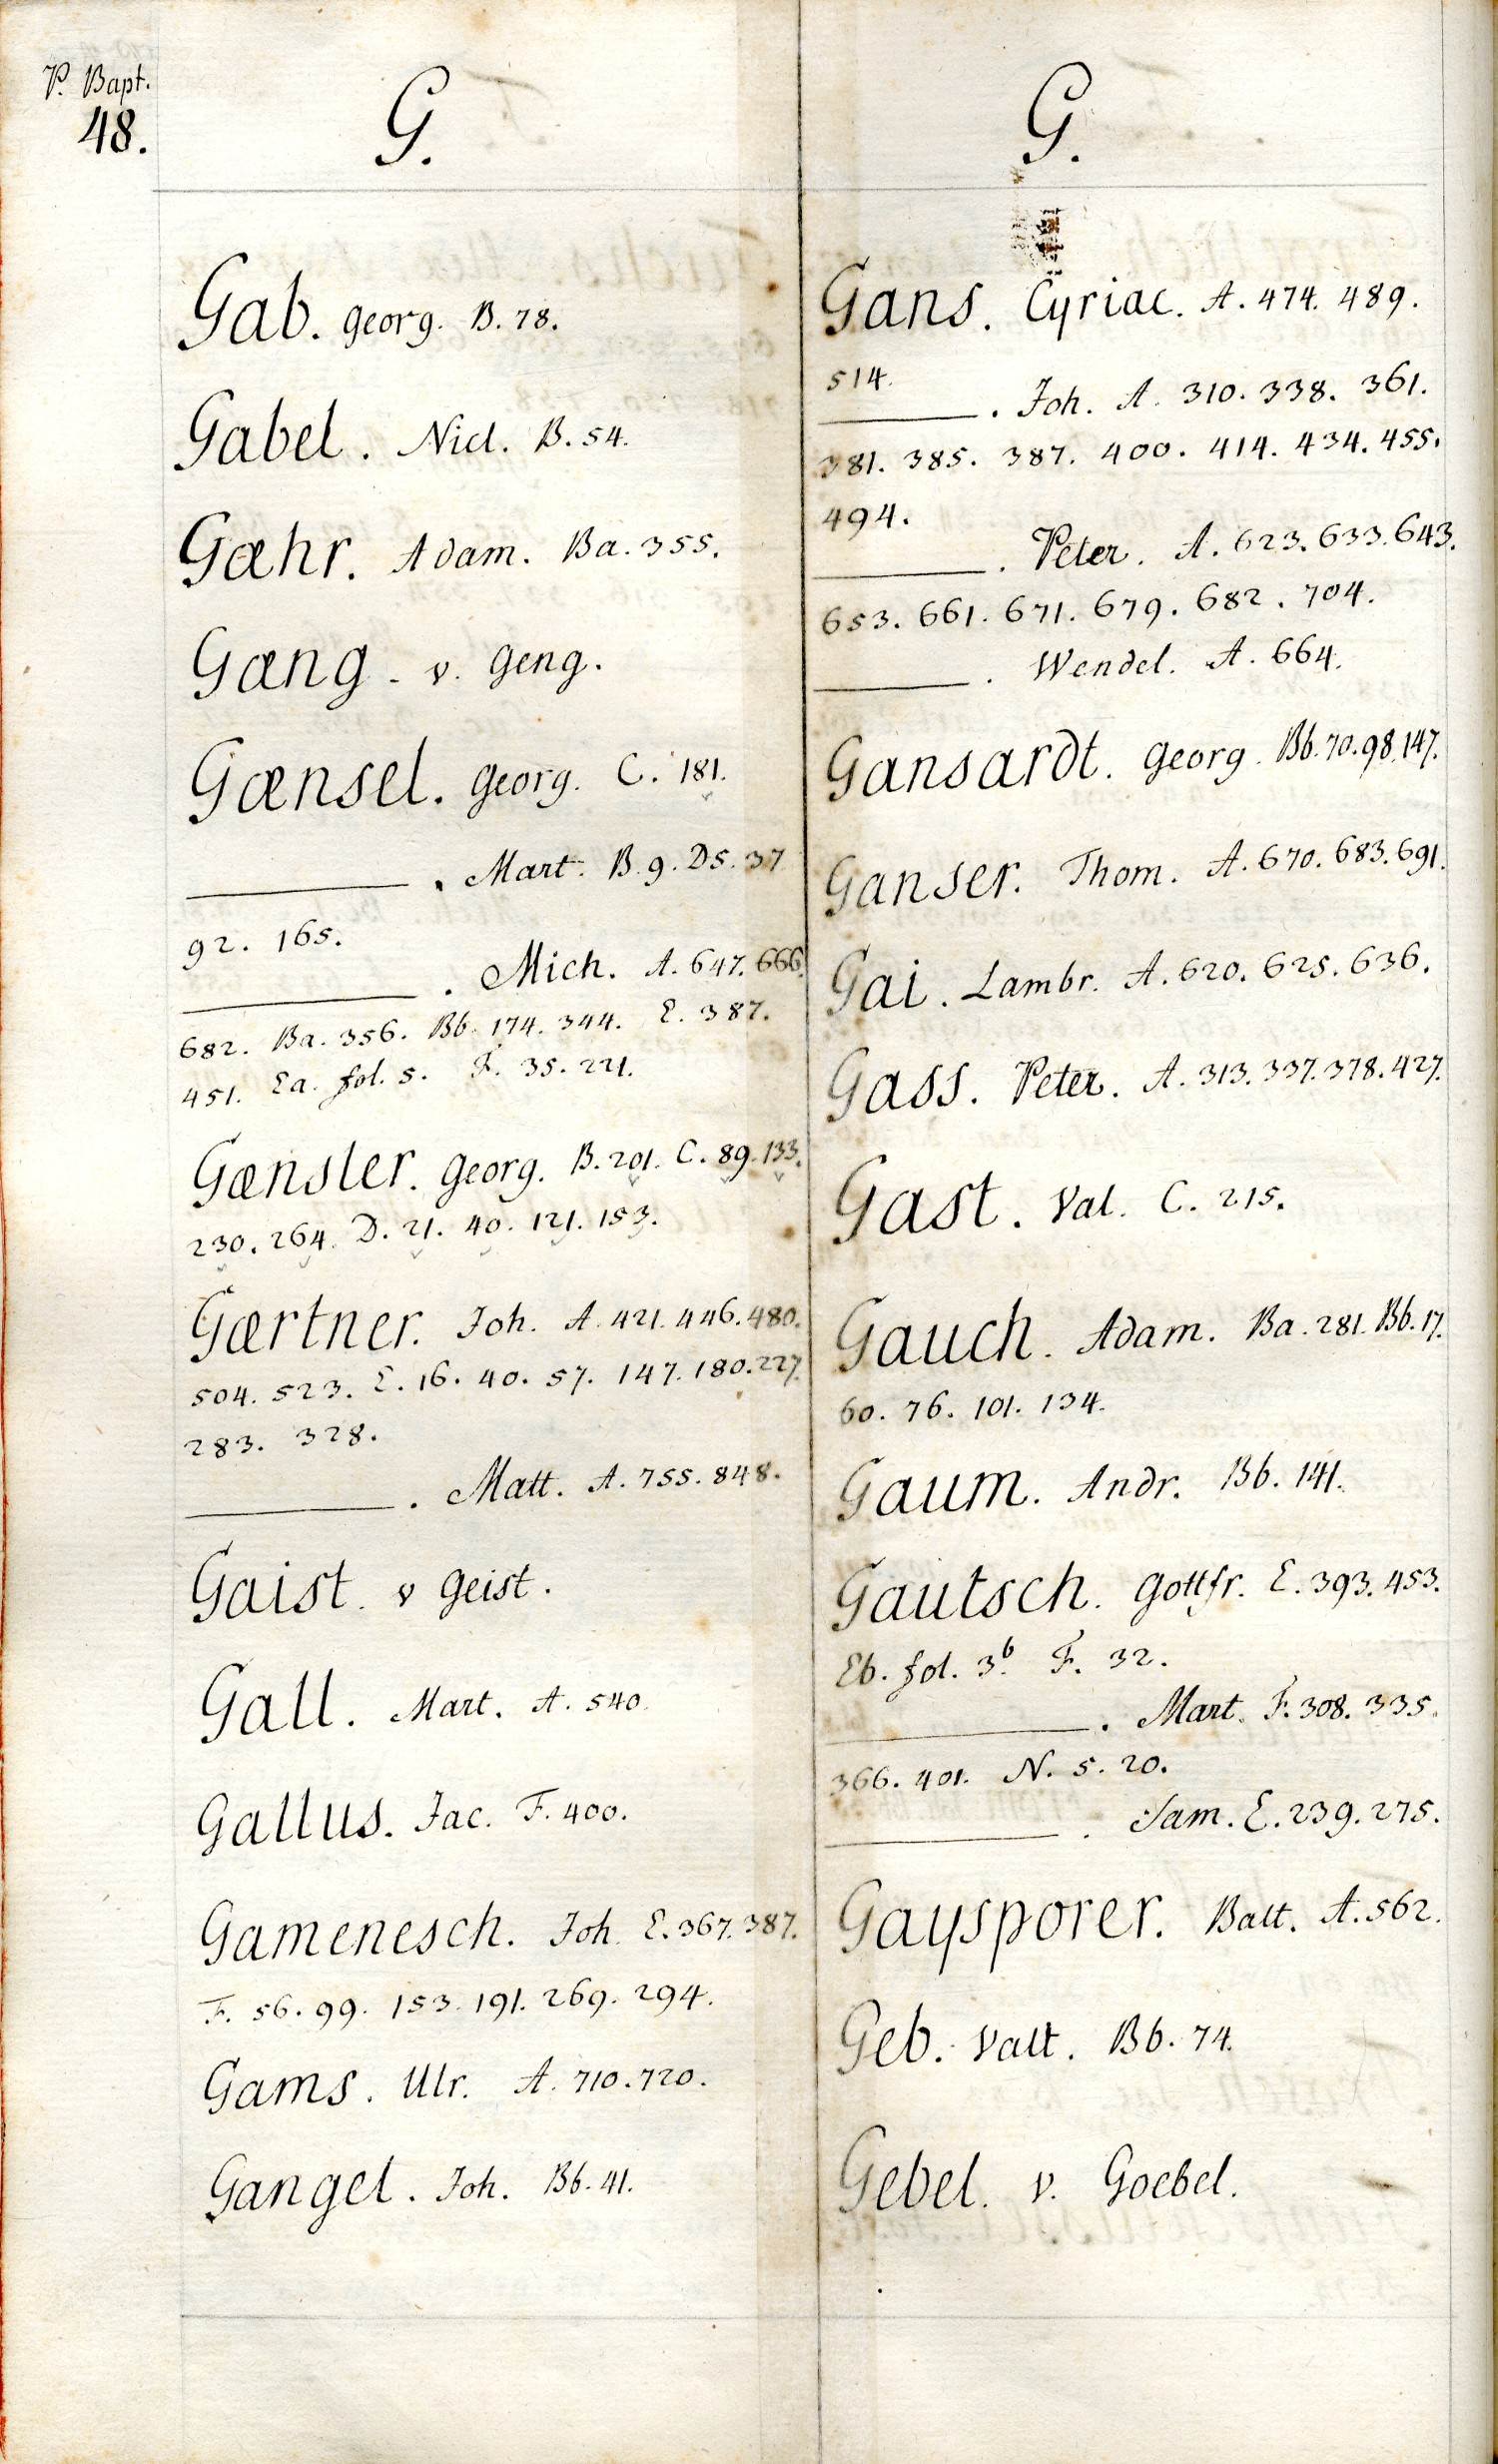 P. Bapt.
48.
G.
Gab. Georg. B. 78.
Gabel. Nicl. B. 54.
Gæhr. Adam. Ba. 355.
Gæng. v. Geng.
Gænsel. Georg. C. 181.
———. Mart. B. 9. D5. 37
92. 165.
———. Mich. A. 647. 666.
682. Ba. 356. Bb. 174. 344. E. 387.
451. Ea. fol. 5. F. 35. 221.
Gænsler. Georg. B. 201. C. 89. 133.
230. 264. D. 21. 40. 121. 153.
Gærtner. Joh. A. 421. 446. 480.
504. 523. E. 16. 40. 57. 147. 180. 227.
283. 328.
———. Matt. A. 755. 848.
Gaist. v Geist.
Gall. Mart. A. 540.
Gallus. Jac. F. 400.
Gamenesch. Joh. E. 367. 387.
F. 56. 99. 153. 191. 269. 294.
Gams. Ulr. A. 710. 720.
Gangel. Joh. Bb. 41.
G.
Gans. Cyriac. A. 474. 489.
514.
———. Joh. A. 310. 338. 361.
381. 385. 387. 400. 414. 434. 455.
494.
———. Peter. A. 623. 633. 643.
653. 661. 671. 679. 682. 704.
———. Wendel. A. 664.
Gansardt. Georg. Bb. 70. 98. 147.
Ganser. Thom. A. 670. 683. 691.
Gai. Lambr. A. 620. 625. 636.
Gass. Peter. A. 313. 337. 378. 427.
Gast. Val. C. 215.
Gauch. Adam. Ba. 281. Bb. 17.
60. 76. 101. 134.
Gaum. Andr. Bb. 141.
Gautsch. Gottfr. E. 393. 453.
Eb. fol. 3b. F. 32.
———. Mart. F. 308. 335.
366. 401. N. 5. 20.
———. Sam. E. 239. 275.
Gaysporer. Balt. A. 562.
Geb. Valt. Bb. 74.
Gebel. v. Goebel.